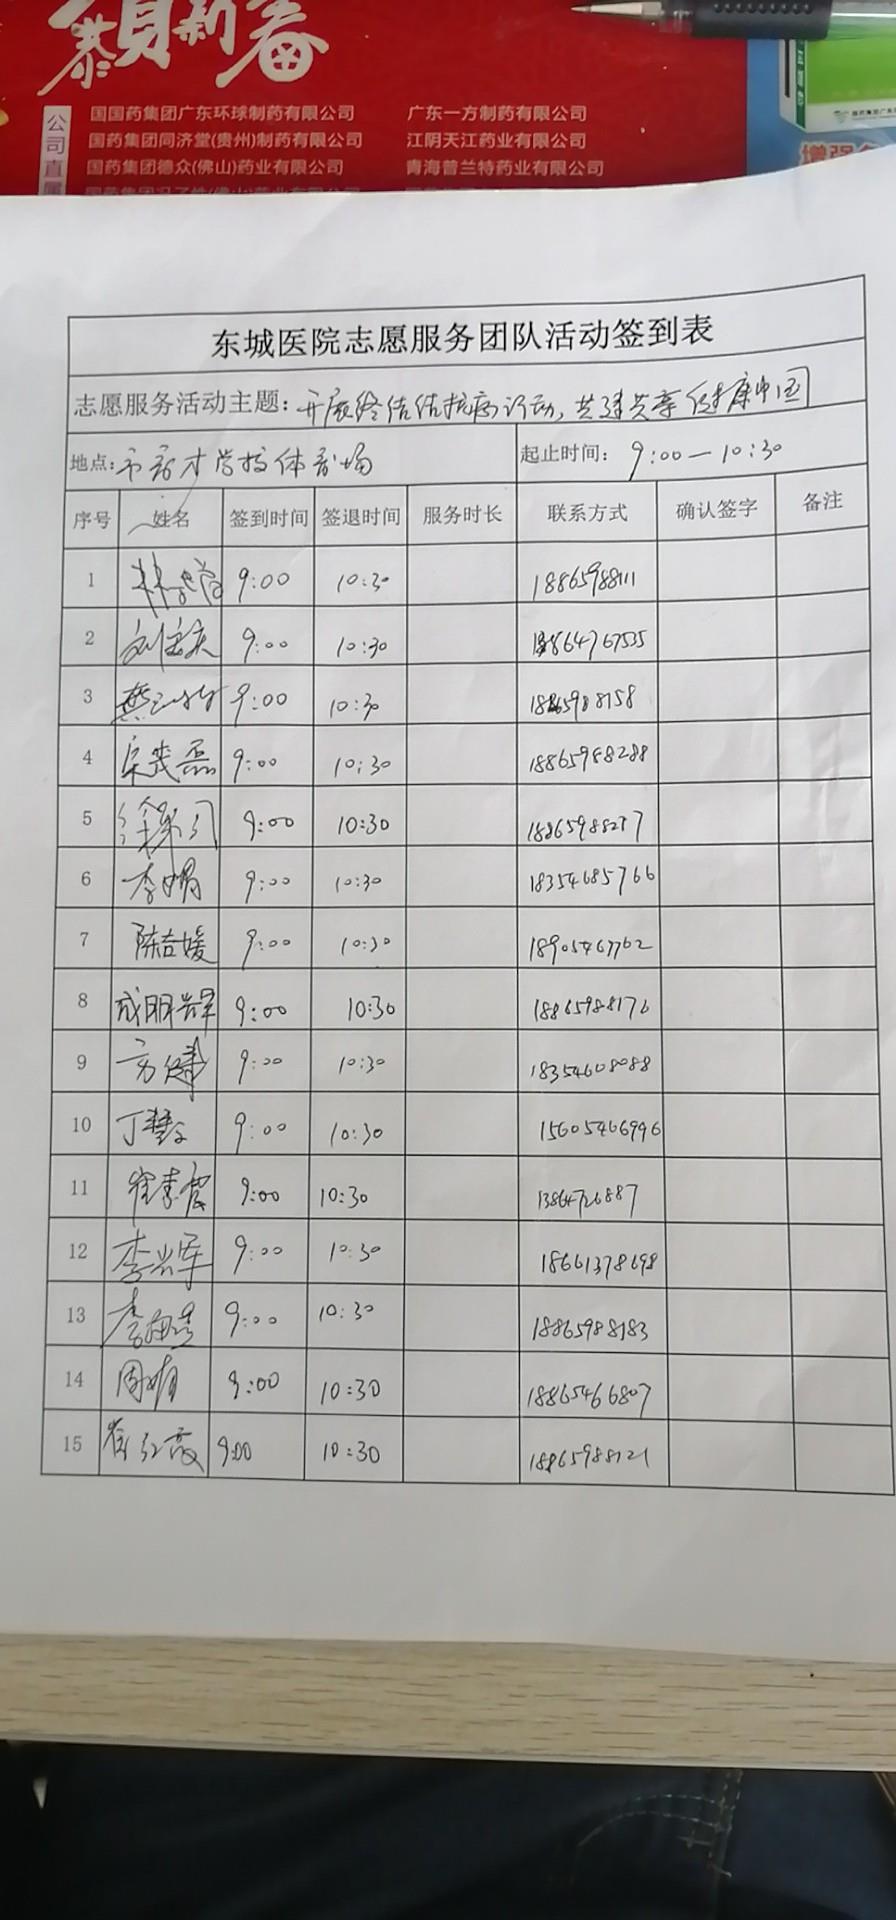 恭贺新春
公司直属
国国药集团广东环球制药有限公司 广东一方制药有限公司
国药集团同济堂(贵州)制药有限公司 江阴天江药业有限公司
国药集团德众(佛山)药业有限公司 青海普兰特药业有限公司
国药集团冯了性(佛山)药业有限公司
增强
东城医院志愿服务团队活动签到表
志愿服务活动主题：开展终结结核病行动，共建共享健康中国
地点：市育才学校体育场 起止时间： 9:00—10:30
序号 姓名 签到时间 签退时间 服务时长 联系方式 确认签字 备注
1 9:00 10:30 18865988111
2 9:00 10:30 18864767535
3 9:00 10:30 18865988158
4 9:00 10:30 18865988288
5 9:00 10:30
6 李娟 9:00 10:30 18354685766
7 陈媛 9:00 10:30 18905467762
8 成明 9:00 10:30 18865988176
9 方健 9:00 10:30 18354608088
10 丁慧 9:00 10:30 15605466996
11 崔 9:00 10:30 13864726887
12 李 军 9:00 10:30 18661378698
13 李 9:00 10:30 18865988183
14 周娟 9:00 10:30 18865466807
15 崔红霞 9:00 10:30 18865988121